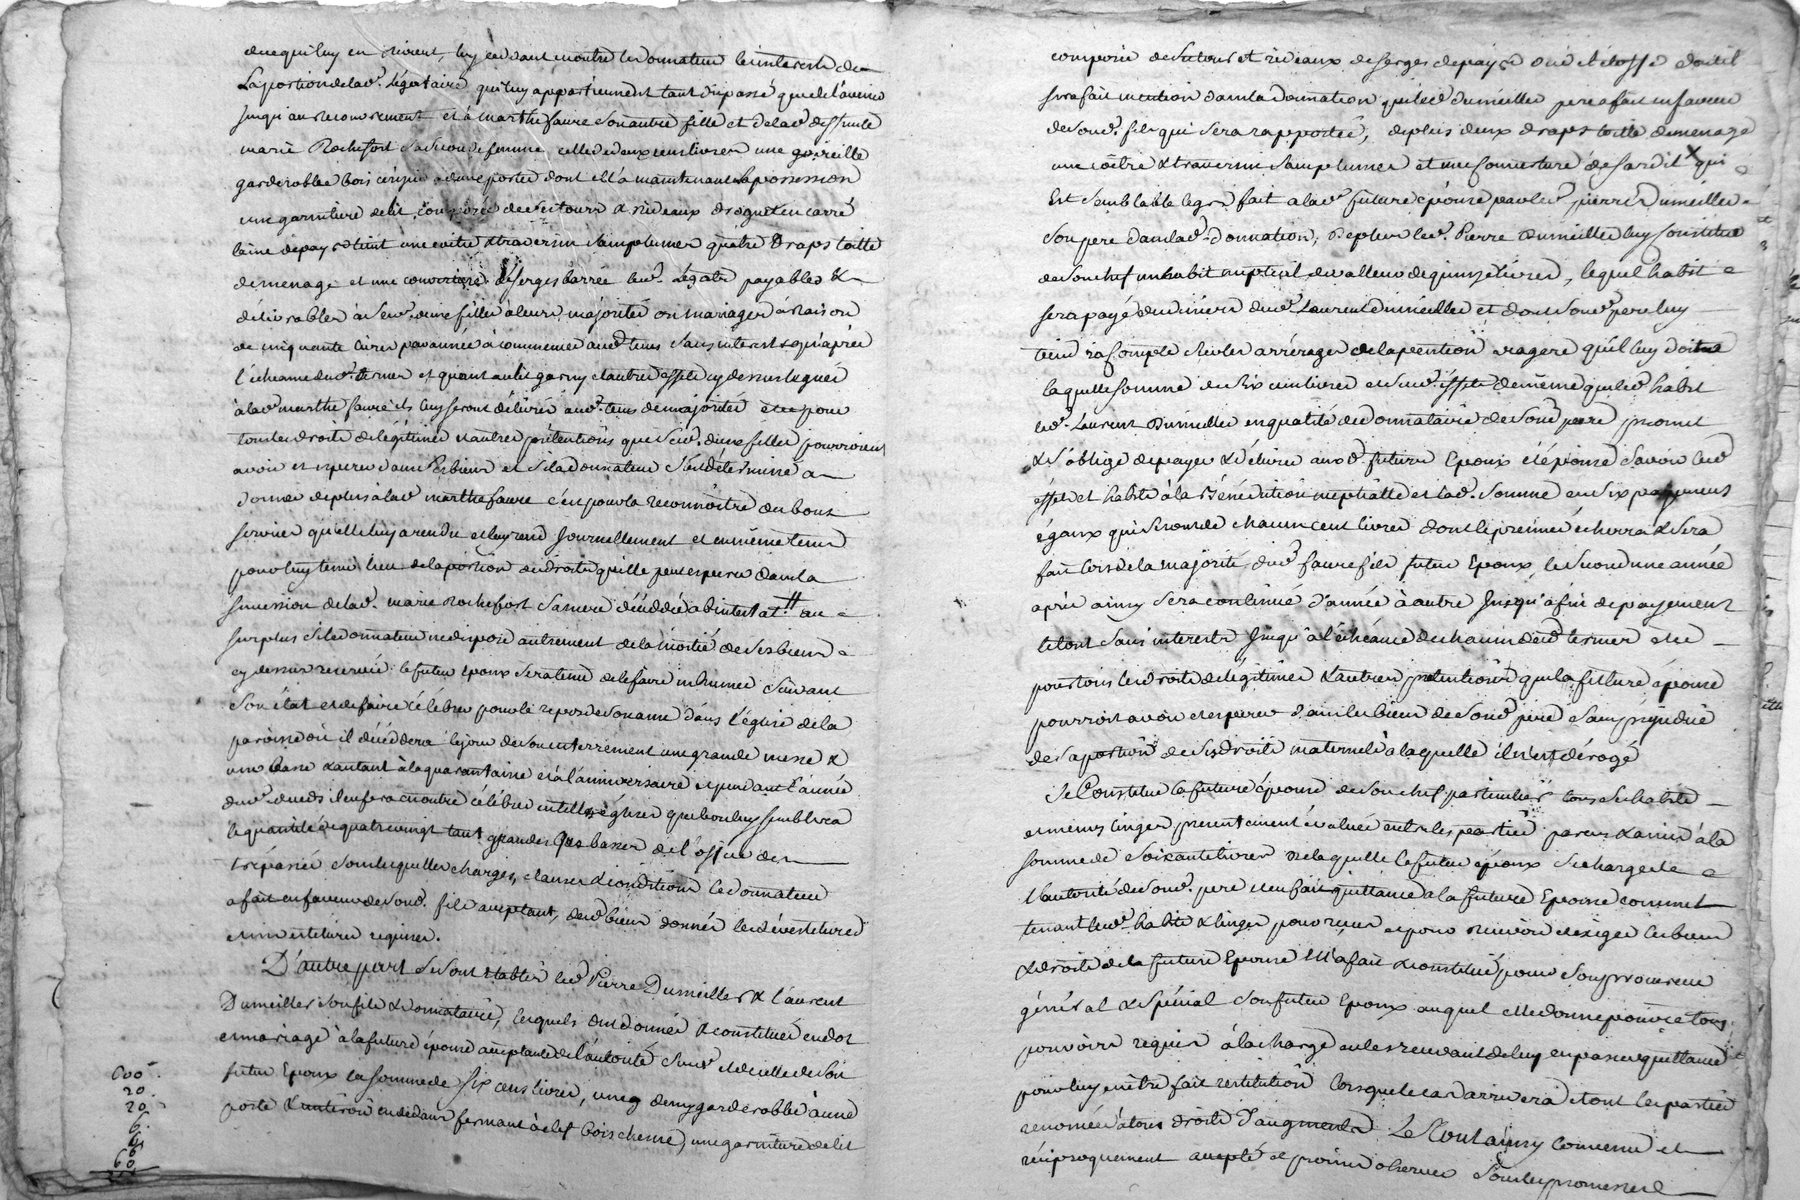 cequi luy en revient, luy cedant encontre le donnateur les interests de
La portion de lad. Légataire qui luy appartiennent tant du passé que de l'avenir
jusqu'au recouvrement et à marthe faure son autre fille et de lad. deffunte
marie Rochefort sa seconde femme, celle de deux cens livres une
garderobbe bois cerizier a une porte dont elle a maintenant la possession
une garniture de lit, composée de ses tours & rideaux droguet en carré
laine de pays teint une coitre & traversin sans plumes quatre draps toille
de menage et une couverture de serges barrée lesd. Légats payables &
délivrables à sesd. deux filles à leurs majorités ou mariages à raison
de cinquante livres par année à commencer aud. tems sans interest qu'après
l'echeance dud. terme et quant au lit garny & autres effets cy dessus legués
à lad. marthe faure ils luy seront délivrés aud. tems de majorité et ce pour
tous les droits de légitime & autres prétentions que sesd. deux filles pourroient
avoir et esperer dans ses biens et si le donnateur s'est déterminé a
donner de plus à lad. marthe faure c'est pour la reconnoitre des bons
services qu'elle luy a rendu et luy rend journellement et en même tems
pour luy tenir lieu de la portion des droits qu'elle peut esperer dans la
succession de lad. marie Rochefort sa mere décédée abintestat # au
surplus si le donnateur ne dispose autrement de la moitié de ses biens
cy dessus reservée le futur epoux sera tenu de le faire inhumer suivant
son état et de faire célébrer pour le repos de son ame dans l'église de la
paroisse où il décédera le jour de son enterrement une grande messe &
une basse & autant à la quarantaine et à l'anniversaire et pendant l'année
dud. deceds il en fera encontre célébrer en telles églises que bon luy semblera
la quantité de quatre vingt tant grandes que basses de l'office des
trépassés sous lesquelles charges, clauses & conditions le donnateur
a fait en faveur de sond. fils acceptant, desd. biens donnés les dévestitures
& investitures requises.
D'autre part se sont établis led. Pierre Dumeilles & Laurent
Dumeilles son fils & donnataire, lesquels ont donné & constitué en dot
et mariage à la future épouse acceptante de l'autorité sur et de celle de son
futur Epoux la somme de six cens livres, un demy garderobbe à une
porte & un tiroir en dedans fermant à clef bois chesne, une garniture de lit
600
20
20
6
6
60
composée de ses tours et rideaux de serges de pays ou etoffe dont il
sera fait mention dans la donnation que led. dumeilles pere a fait en faveur
de sond. fils qui sera rapportée, de plus deux draps toille de menage
une coitre & traversin sans plumes et une couverture de sardit x qui
Est semblable legs fait a lad. future épouse par led. pierre Dumeilles
son pere dans lad. donnation, De plus led. Pierre Dumeilles luy constitue
de son chef un habit nuptial de valleur de quinze livres, lequel habit
sera payé des deniers dud. Laurent Dumeilles et dont sond. pere luy
tiendra compte sur les arrérages de la pention viagere qu'il luy doit
laquelle somme de six cens livres et sesd. effets de même que led. habit
led. Laurent Dumeilles en qualité de donnataire de sond. pere promet
& s'oblige de payer & délivrer auxd. futurs Epoux et épouse Savoir lesd.
effets et habits à la Bénédiction nuptialle et lad. somme en six payemens
égaux qui seront de chacun cent livres dont le premier écherra & sera
fait lors de la majorité dud. faure fils futur Epoux, le second une année
après ainsy sera continué d'année à autre jusqu'à fin de payement
le tout sans interests jusqu'à l'échéance de chacun desd. termes et ce
pour tous les droits de légitimes & autres prétentions que la future épouse
pourroit avoir et esperer dans les biens de sond. père Sans préjudice
de sa portion de ses droits maternels à laquelle il n'est dérogé
Se Constitue la future épouse de son chef particulier tous ses habits
et menus linges presentement évalués entre les parties par eux & amis à la
somme de soixante livres de laquelle le futur époux se charge de
l'autorité de sond. pere & en fait quittance a la future Epouse comme
tenant lesd. habits & linges pour reçus et pour recevoir & exiger les biens
& droits de la future Epouse Elle a fait & constitué pour son procureur
général & spécial son futur Epoux auquel elle donne pouvoir tous
pouvoirs requis à la charge en les recevant de luy en passer quittance
pour luy en être fait restitution lorsque le cas arrivera et ont les parties
renoncé à tous droits d'augments. Le tout ainsy convenu et
réciproquement accepté et promis observer Sous les promesses